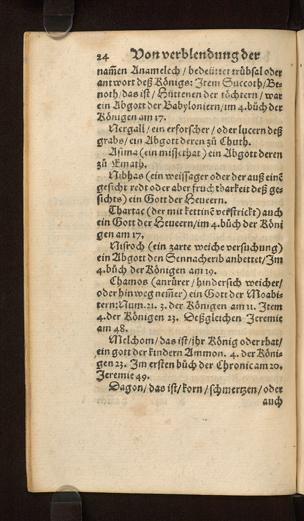 24 Von verblendung der
nam̃en Anamelech / bedeüttet trübsal oder
antwort deß Königs: Item Succoth / Be-
noth / das ist / Hüttenen der töchtern / war
ein Abgott der Babyloniern / im 4. bůch der
Königen am 17.
Nergall / ein erforscher / oder lucern deß
grabs / ein Abgott deren zů Chuth.
Asima (ein missethat) ein Abgott deren
zů Emath.
Nibhas (ein weissager oder der auß einẽ
gesicht redt oder aber fruchtbarkeit deß ge-
sichts) ein Gott der Heueern.
Thartac (der mit kettinẽ verstrickt) auch
ein Gott der Heueern / im 4. bůch der Köni
gen am 17.
Nisroch (ein zarte weiche versuchung)
ein Abgott den Sennacherib anbettet / Im
4. bůch der Königen am 19.
Chamos (anrürer / hindersich weicher /
oder hinweg nem̃er) ein Gott der Moabi-
tern: Num. 21. 3. der Königen am 11. Item
4. der Königen 23. Deßgleichen Jeremie
am 48.
Melchom / das ist / jhr König oder rhat /
ein gott der kindern Ammon. 4. der Köni-
gen 23. Im ersten bůch der Chronic am 20.
Jeremie 49.
Dagon / das ist / korn / schmertzen / oder
auch